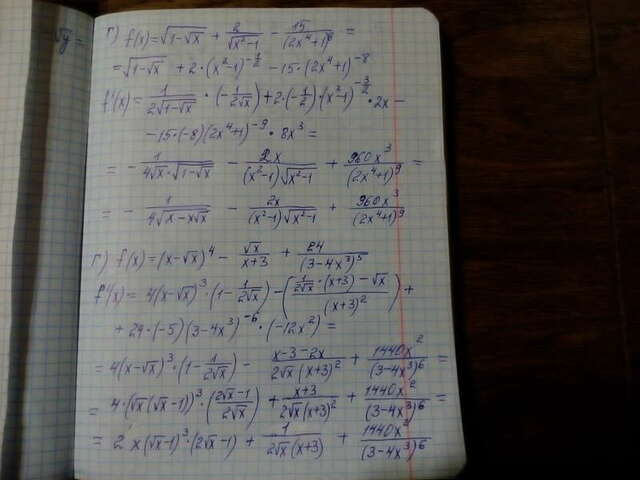 √y =
г) f(x) = √(1-√x) + 2/√(x²-1) - 15/(2x⁴+1)⁸ =
= √(1-√x) + 2·(x²-1)^(-1/2) - 15·(2x⁴+1)^(-8)
f'(x) = 1/(2√(1-√x)) · (-1/(2√x)) + 2·(-1/2)·(x²-1)^(-3/2) · 2x -
-15·(-8)(2x⁴+1)^(-9) · 8x³ =
= - 1/(4√x·√(1-√x)) - 2x/((x²-1)√(x²-1)) + 960x³/(2x⁴+1)⁹ =
= - 1/(4√(x-x√x)) - 2x/((x²-1)√(x²-1)) + 960x³/(2x⁴+1)⁹
г) f(x) = (x-√x)⁴ - √x/(x+3) + 24/(3-4x³)⁵
f'(x) = 4(x-√x)³·(1-1/(2√x)) - ((1/(2√x)·(x+3)-√x)/(x+3)²) +
+ 24·(-5)(3-4x³)^(-6)·(-12x²) =
= 4(x-√x)³·(1-1/(2√x)) - (x-3-2x)/(2√x(x+3)²) + 1440x²/(3-4x³)⁶ =
= 4·(√x(√x-1))³·((2√x-1)/(2√x)) + (x+3)/(2√x(x+3)²) + 1440x²/(3-4x³)⁶ =
= 2x(√x-1)³·(2√x-1) + 1/(2√x(x+3)) + 1440x²/(3-4x³)⁶